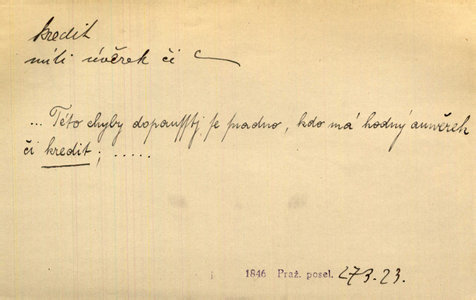 kredit
míti úvěrek či
... Této chyby dopausstj se snadno, kdo má hodný auwěrek
či kredit; .....
1846 Praž. posel. 273.23.